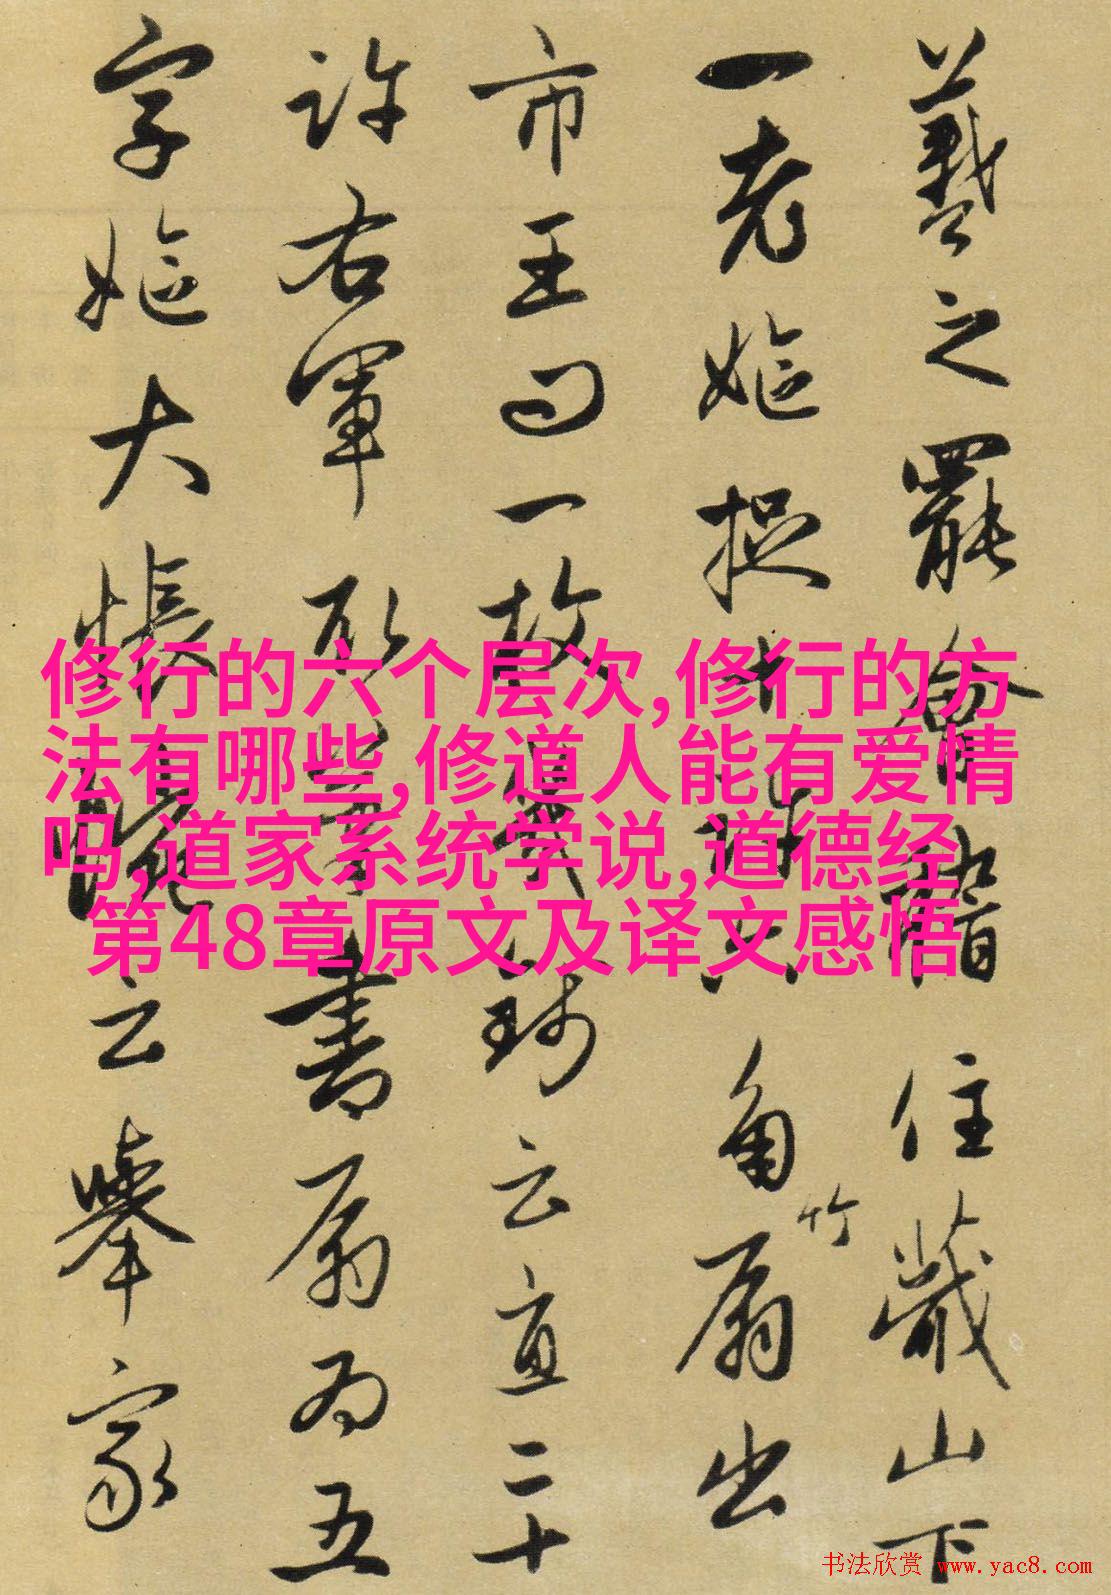 羲之罷會稽住蕺山下
一老嫗捉六角竹扇出
市王曰一故幾錢云直二十
許右軍取筆書扇為五
字嫗大悵惋云舉家
修行的六个层次,修行的方
法有哪些,修道人能有爱情
吗,道家系统学说,道德经
第48章原文及译文感悟
书法欣赏 www.yac8.com